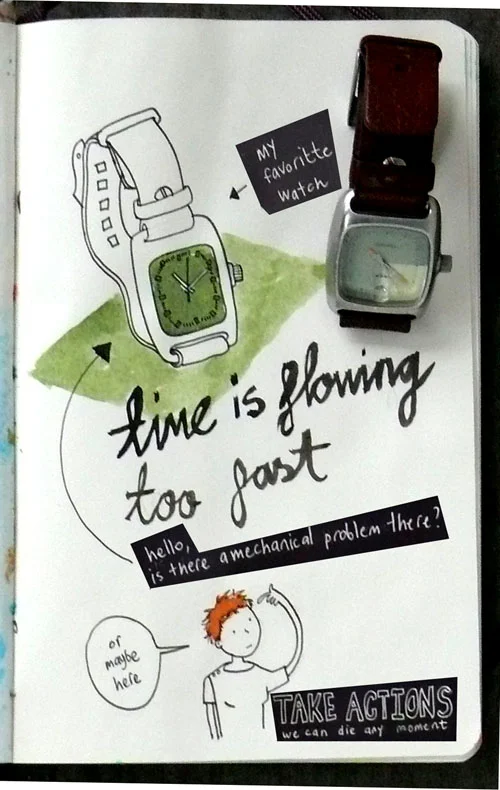 MY
favoritte
watch
time is flowing
too fast
hello,
is there a mechanical problem there?
or
maybe
here
TAKE ACTIONS
we can die any moment